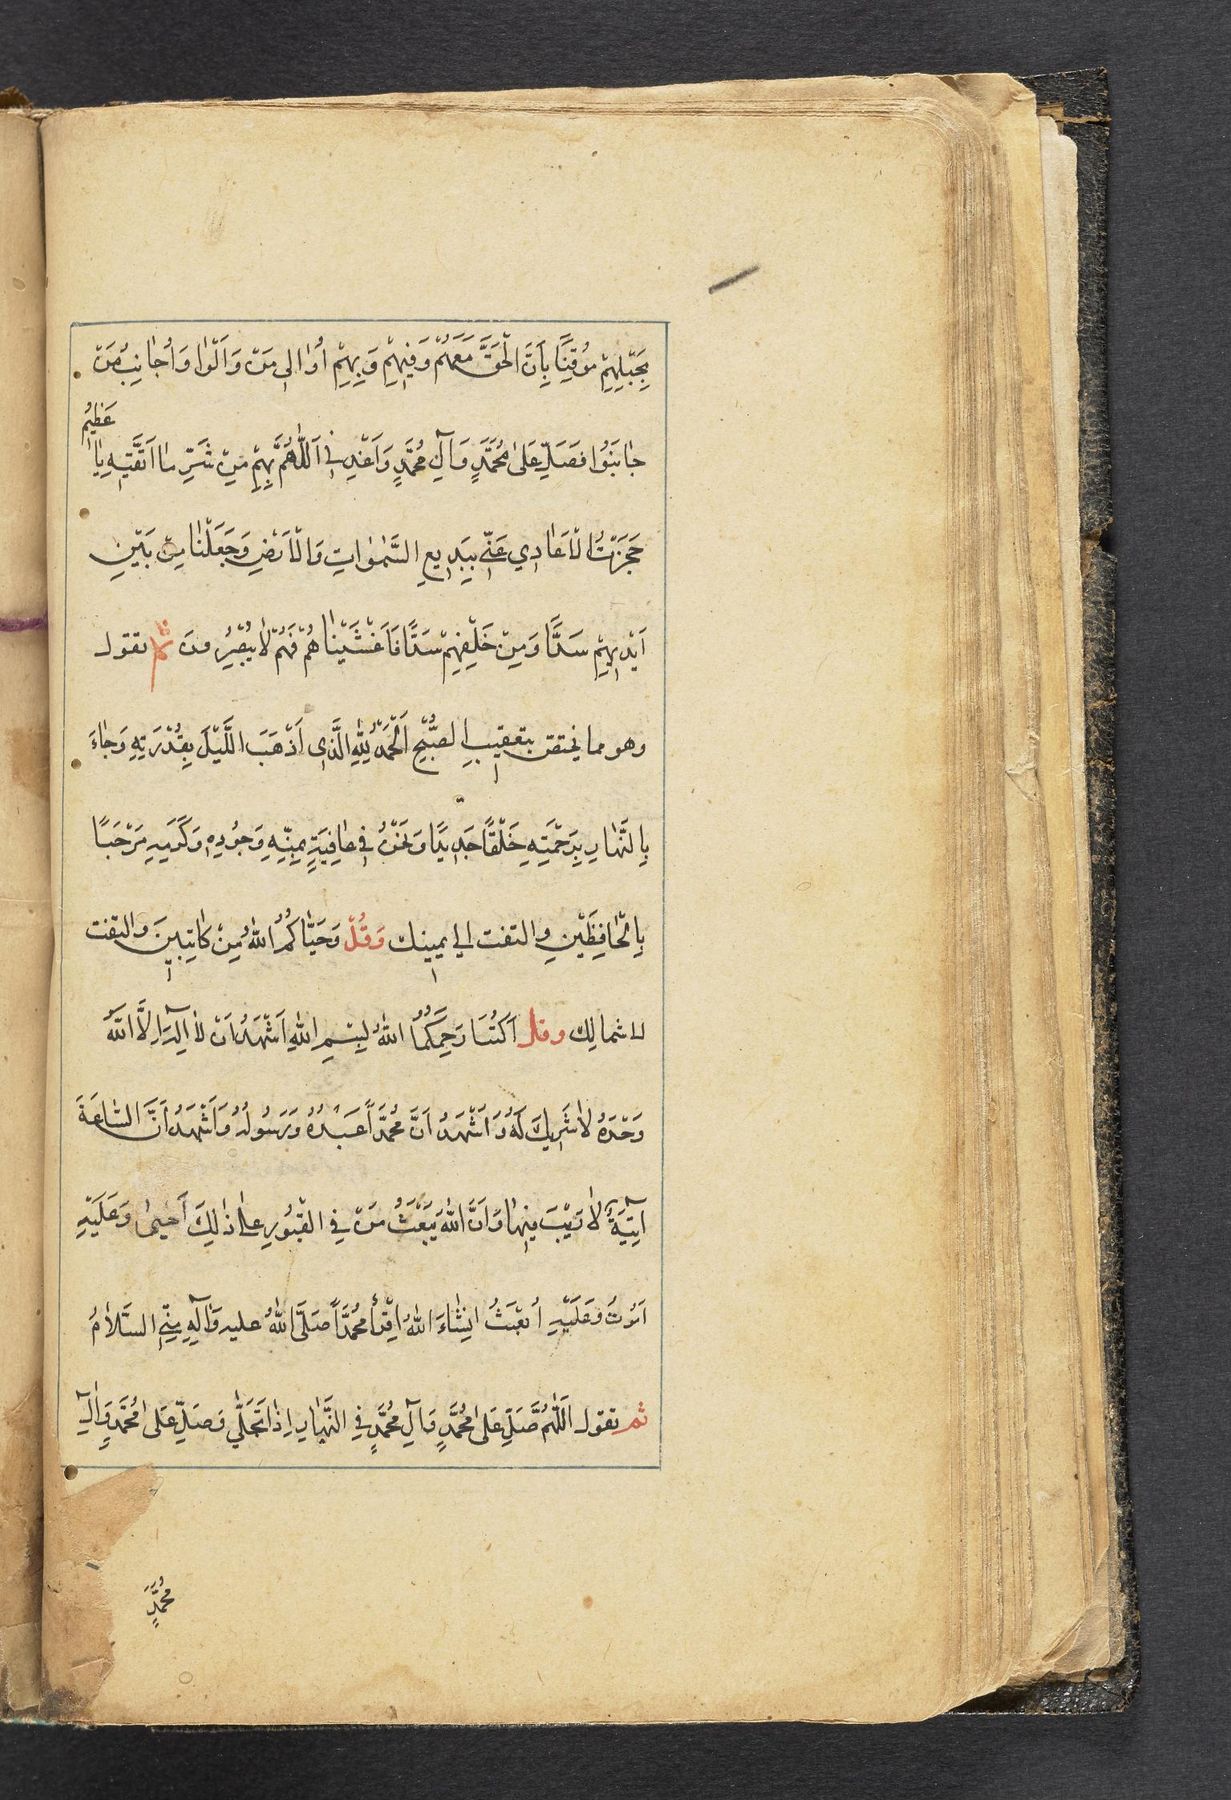 بِحَبْلِهِمْ مُوقِنًا بِاَنَّ الْحَقَّ مَعَهُمْ وَفِيهِمْ وَبِهِمْ اُوٰالِى مَنْ وَالَوْا وَاُجٰانِبُ مَنْ
جٰانَبُوا فَصَلِّ عَلٰى مُحَمَّدٍ وَآلِ مُحَمَّدٍ وَاَعِذْنِى اَللّٰهُمَّ بِهِمْ مِنْ شَرِّ مٰا اَتَّقِيهِ يٰا عَظِيمُ
حَجَزْتُ الْاَعٰادِي عَنِّي بِبَدِيعِ السَّمٰوٰاتِ وَالْاَرْضِ وَجَعَلْنٰا مِنْ بَيْنِ
اَيْدِيهِمْ سَدًّا وَمِنْ خَلْفِهِمْ سَدًّا فَاَغْشَيْنٰاهُمْ فَهُمْ لٰا يُبْصِرُونَ ثم تقول
وهو مما يختص بتعقيب الصُّبْحِ اَلْحَمْدُ لِلّٰهِ الَّذِى اَذْهَبَ اللَّيْلَ بِقُدْرَتِهِ وَجٰاءَ
بِالنَّهٰارِ بِرَحْمَتِهِ خَلْقًا جَدِيدًا وَنَحْنُ فِى عٰافِيَةٍ بِمَنِّهِ وَجُودِهِ وَكَرَمِهِ مَرْحَبًا
بِالْحٰافِظَيْنِ والتفت الي يمينك وَقُلْ وَحَيّٰاكُمُ اللّٰهُ مِنْ كٰاتِبَيْنَ والتفت
لا شمالك وقل اُكْتُبَا رَحِمَكُمَا اللّٰهُ بِسْمِ اللّٰهِ اَشْهَدُ اَنْ لٰا اِلٰهَ اِلَّا اللّٰهُ
وَحْدَهُ لٰا شَرِيكَ لَهُ وَاَشْهَدُ اَنَّ مُحَمَّدًا عَبْدُهُ وَرَسُولُهُ وَاَشْهَدُ اَنَّ السّٰاعَةَ
آتِيَةٌ لٰا رَيْبَ فِيهٰا وَاَنَّ اللّٰهَ يَبْعَثُ مَنْ فِي الْقُبُورِ عَلٰى ذٰلِكَ اَحْيىٰ وَعَلَيْهِ
اَمُوتُ وَعَلَيْهِ اُبْعَثُ اِنْشٰاءَ اللّٰهُ اِقْرَأْ مُحَمَّدًا صَلَّى اللّٰهُ عليه وَآلِهِ مِنِّي السَّلٰامُ
ثم تقول اَللّٰهُمَّ صَلِّ عَلٰى مُحَمَّدٍ وَآلِ مُحَمَّدٍ فِي النَّهٰارِ اِذٰا تَجَلّٰي وَصَلِّ عَلٰى مُحَمَّدٍ وَآلِ
مُحَمَّدٍ